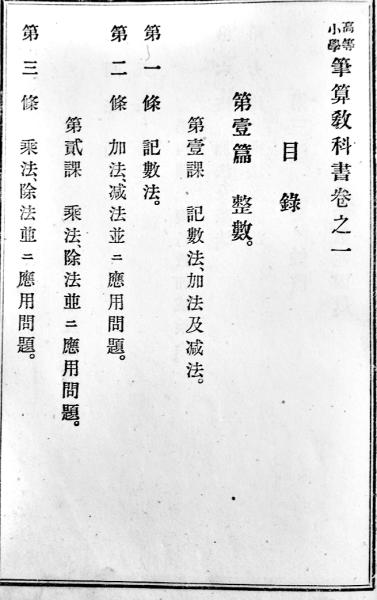 高等小學筆算教科書卷之一
目錄
第壹篇 整數。
第壹課 記數法、加法及減法。
第一條 記數法。
第二條 加法、减法並ニ應用問題。
第貳課 乘法、除法並ニ應用問題。
第三條 乘法、除法並ニ應用問題。